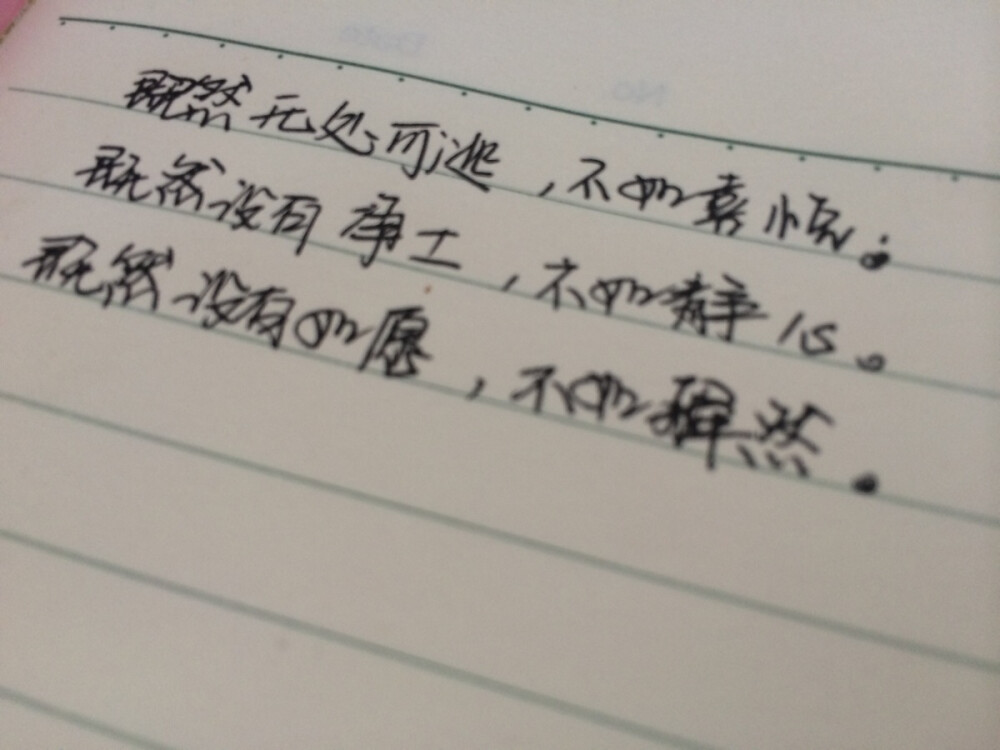 既然无处可逃，不如喜悦。
既然没有净土，不如静心。
既然没有如愿，不如释然。